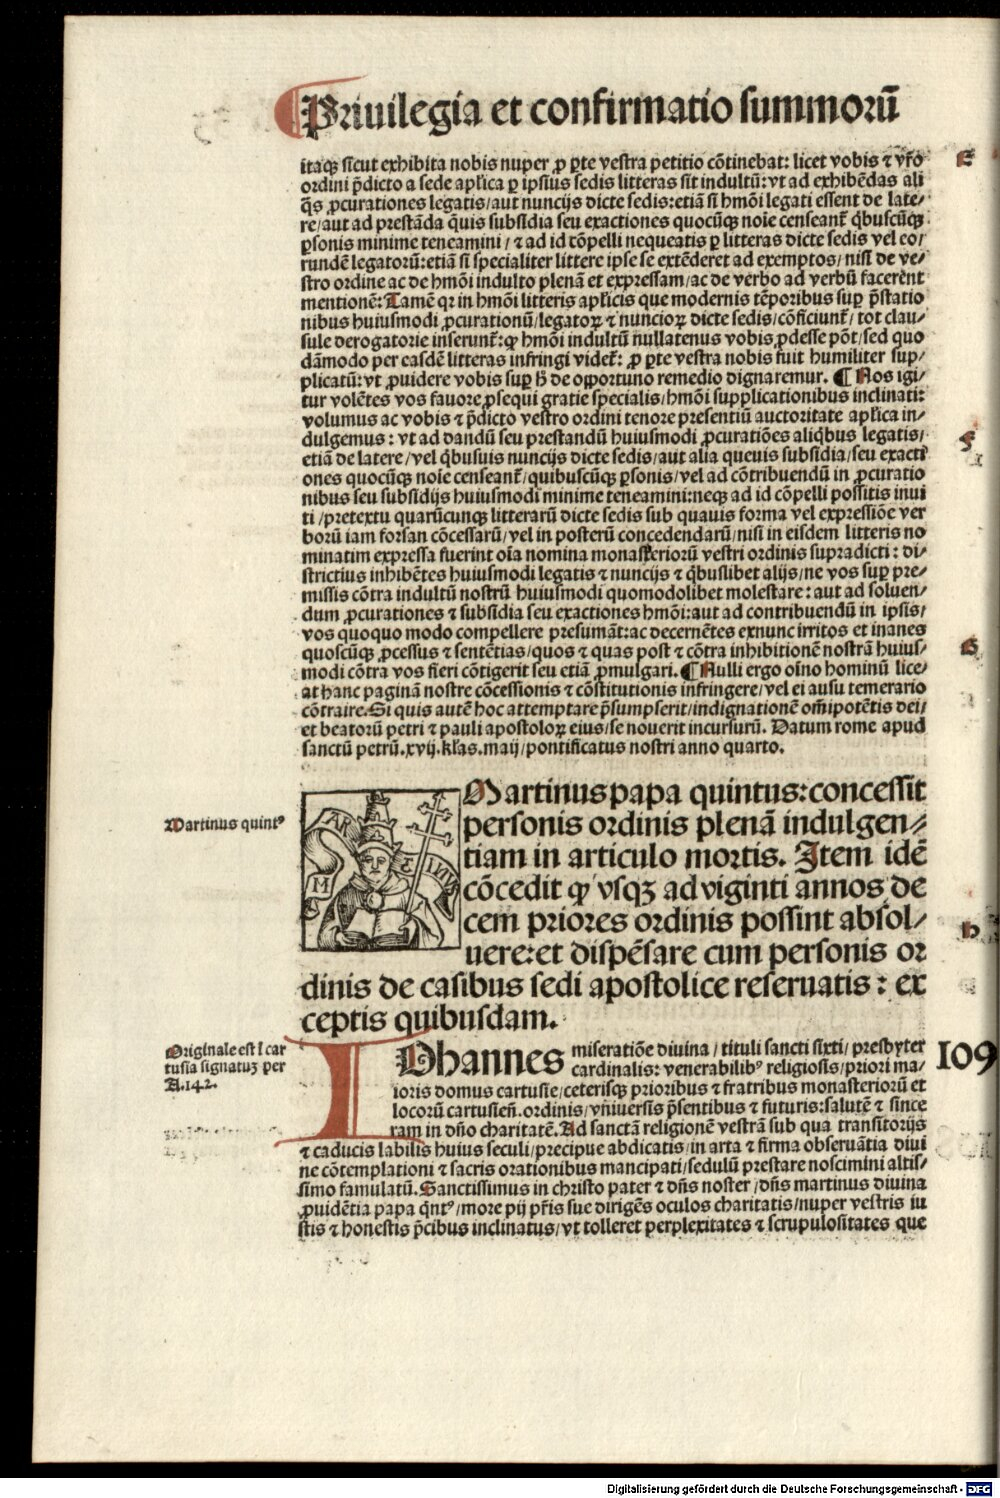 Priuilegia et confirmatio summorū
itaqꝫ sicut exhibita nobis nuper ꝓ ꝑte vestra petitio cōtinebat: licet vobis ⁊ vr̃o
E
ordini p̄dicto a sede aplica ꝑ ipsius sedis litteras sit indultū: vt ad exhibēdas ali
q̄s ꝓcurationes legatis/aut nuncijs dicte sedis: etiā si hmōi legati essent de late/
re/aut ad prestāda q̄uis subsidia seu exactiones quocūqꝫ noīe censeant̄ q̄buscūqꝫ
ꝑsonis minime teneamini/⁊ ad id cōpelli nequeatis ꝑ litteras dicte sedis vel eo/
rundē legatorū: etiā si specialiter littere ipse se extēderet ad exemptos/nisi de ve/
stro ordine ac de hmōi indulto plenā et expressam/ac de verbo ad verbū facerent
mentionē: Tamē qꝛ in hmōi litteris aplicis que modernis tēporibus suꝑ p̄statio
nibus huiusmodi ꝓcurationū/legatoꝝ ⁊ nuncioꝝ dicte sedis/cōficiunt̄/tot clau/
sule derogatorie inserunt̄: qꝙ hmōi indultū nullatenus vobis ꝓdesse pōt/sed quo
dāmodo per easdē litteras infringi videt̄: ꝓ ꝑte vestra nobis fuit humiliter sup/
plicatū: vt ꝓuidere vobis suꝑ h̄ de opportuno remedio dignaremur. ¶ Nos igi/
tur volētes vos fauore ꝓsequi gratie specialis/hmōi supplicationibus inclinati:
volumus ac vobis ⁊ p̄dicto vestro ordini tenore presentiū auctoritate aplica in/
dulgemus: vt ad dandū seu prestandū huiusmodi ꝓcuratiōes aliq̄bus legatis/
F
etiā de latere/vel q̄busuis nuncijs dicte sedis/aut alia queuis subsidia/seu exacti
ones quocūqꝫ noīe censeant̄/quibuscūqꝫ ꝑsonis/vel ad cōtribuendū in ꝓcuratio
nibus seu subsidijs huiusmodi minime teneamini: neqꝫ ad id cōpelli possitis inui
ti/pretextu quarūcunqꝫ litterarū dicte sedis sub quauis forma vel expressiōe ver
borū iam forsan cōcessarū/vel in posterū concedendarū/nisi in eisdem litteris no
minatim expressa fuerint oīa nomina monasteriorū vestri ordinis supradicti: di/
strictius inhibētes huiusmodi legatis ⁊ nuncijs ⁊ q̄buslibet alijs/ne vos suꝑ pre/
missis cōtra indultū nostrū huiusmodi quomodolibet molestare: aut ad soluen/
dum ꝓcurationes ⁊ subsidia seu exactiones hmōi: aut ad contribuendū in ipsis/
vos quoquo modo compellere presumāt: ac decernētes exnunc irritos et inanes
quoscūqꝫ ꝓcessus ⁊ sentētias/quos ⁊ quas post ⁊ cōtra inhibitionē nostrā huius/
G
modi cōtra vos fieri cōtigerit seu etiā ꝓmulgari. ¶ Nulli ergo oīno hominū lice/
at hanc paginā nostre cōcessionis ⁊ cōstitutionis infringere/vel ei ausu temerario
cōtraire. Si quis autē hoc attemptare p̄sumpserit/indignationē om̄ipotētis dei/
et beatorū petri ⁊ pauli apostoloꝝ eius/se nouerit incursurū. Datum rome apud
sanctū petrū. xvij. klas. maij/pontificatus nostri anno quarto.
Martinus quintꝰ
MARTINVS
Martinus papa quintus: concessit
personis ordinis plenā indulgen/
tiam in articulo mortis. Item idē
cōcedit qꝙ vsqꝫ ad viginti annos de
cem priores ordinis possint absol/
H
uere: et dispēsare cum personis or
dinis de casibus sedi apostolice reseruatis: ex
ceptis quibusdam.
Originale est ī car
tusia signatuꝫ per
A.142.
109
IOhannes miseratiōe diuina/tituli sancti sixti/presbyter
cardinalis: venerabilibꝰ religiosis/priori ma/
ioris domus cartusie/ceterisqꝫ prioribus ⁊ fratribus monasteriorū et
locorū cartusieñ. ordinis/vn̄iuersis p̄sentibus ⁊ futuris: salutē ⁊ since
ram in dn̄o charitatē. Ad sanctā religionē vestrā sub qua transitorijs
⁊ caducis labilis huius seculi/precipue abdicatis/in arta ⁊ firma obseruātia diui
ne cōtemplationi ⁊ sacris orationibus mancipati/sedulū prestare noscimini altis/
simo famulatū. Sanctissimus in christo pater ⁊ dn̄s noster/dn̄s martinus diuina
ꝓuidētia papa q̄ntꝰ/more pij pr̄is sue dirigēs oculos charitatis/nuper vestris iu
stis ⁊ honestis p̄cibus inclinatus/vt tolleret perplexitates ⁊ scrupulositates que
Digitalisierung gefördert durch die Deutsche Forschungsgemeinschaft - DFG